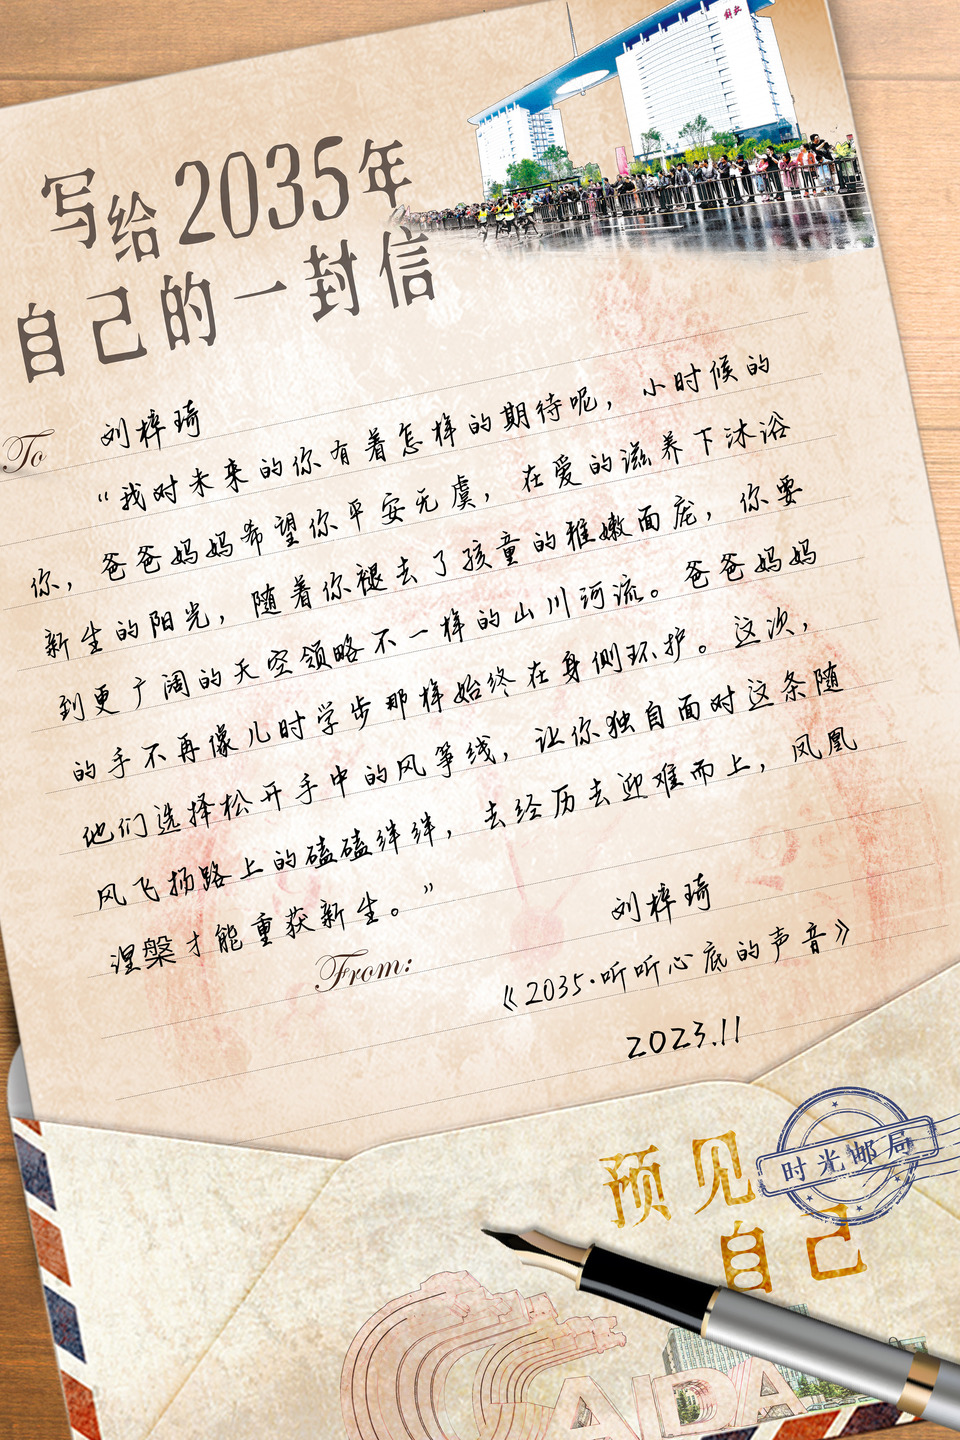 写给2035年
自己的一封信
To 刘梓琦
“我对未来的你有着怎样的期待呢，小时候的
你，爸爸妈妈希望你平安无虞，在爱的滋养下沐浴
新生的阳光，随着你褪去了孩童的稚嫩面庞，你要
到更广阔的天空领略不一样的山川河流。爸爸妈妈
的手不再像儿时学步那样始终在身侧环护。这次，
他们选择松开手中的风筝线，让你独自面对这条随
风飞扬路上的磕磕绊绊，去经历去迎难而上，凤凰
涅槃才能重获新生。”
From: 刘梓琦
《2035·听听心底的声音》
2023.11
预见
自己
时光邮局